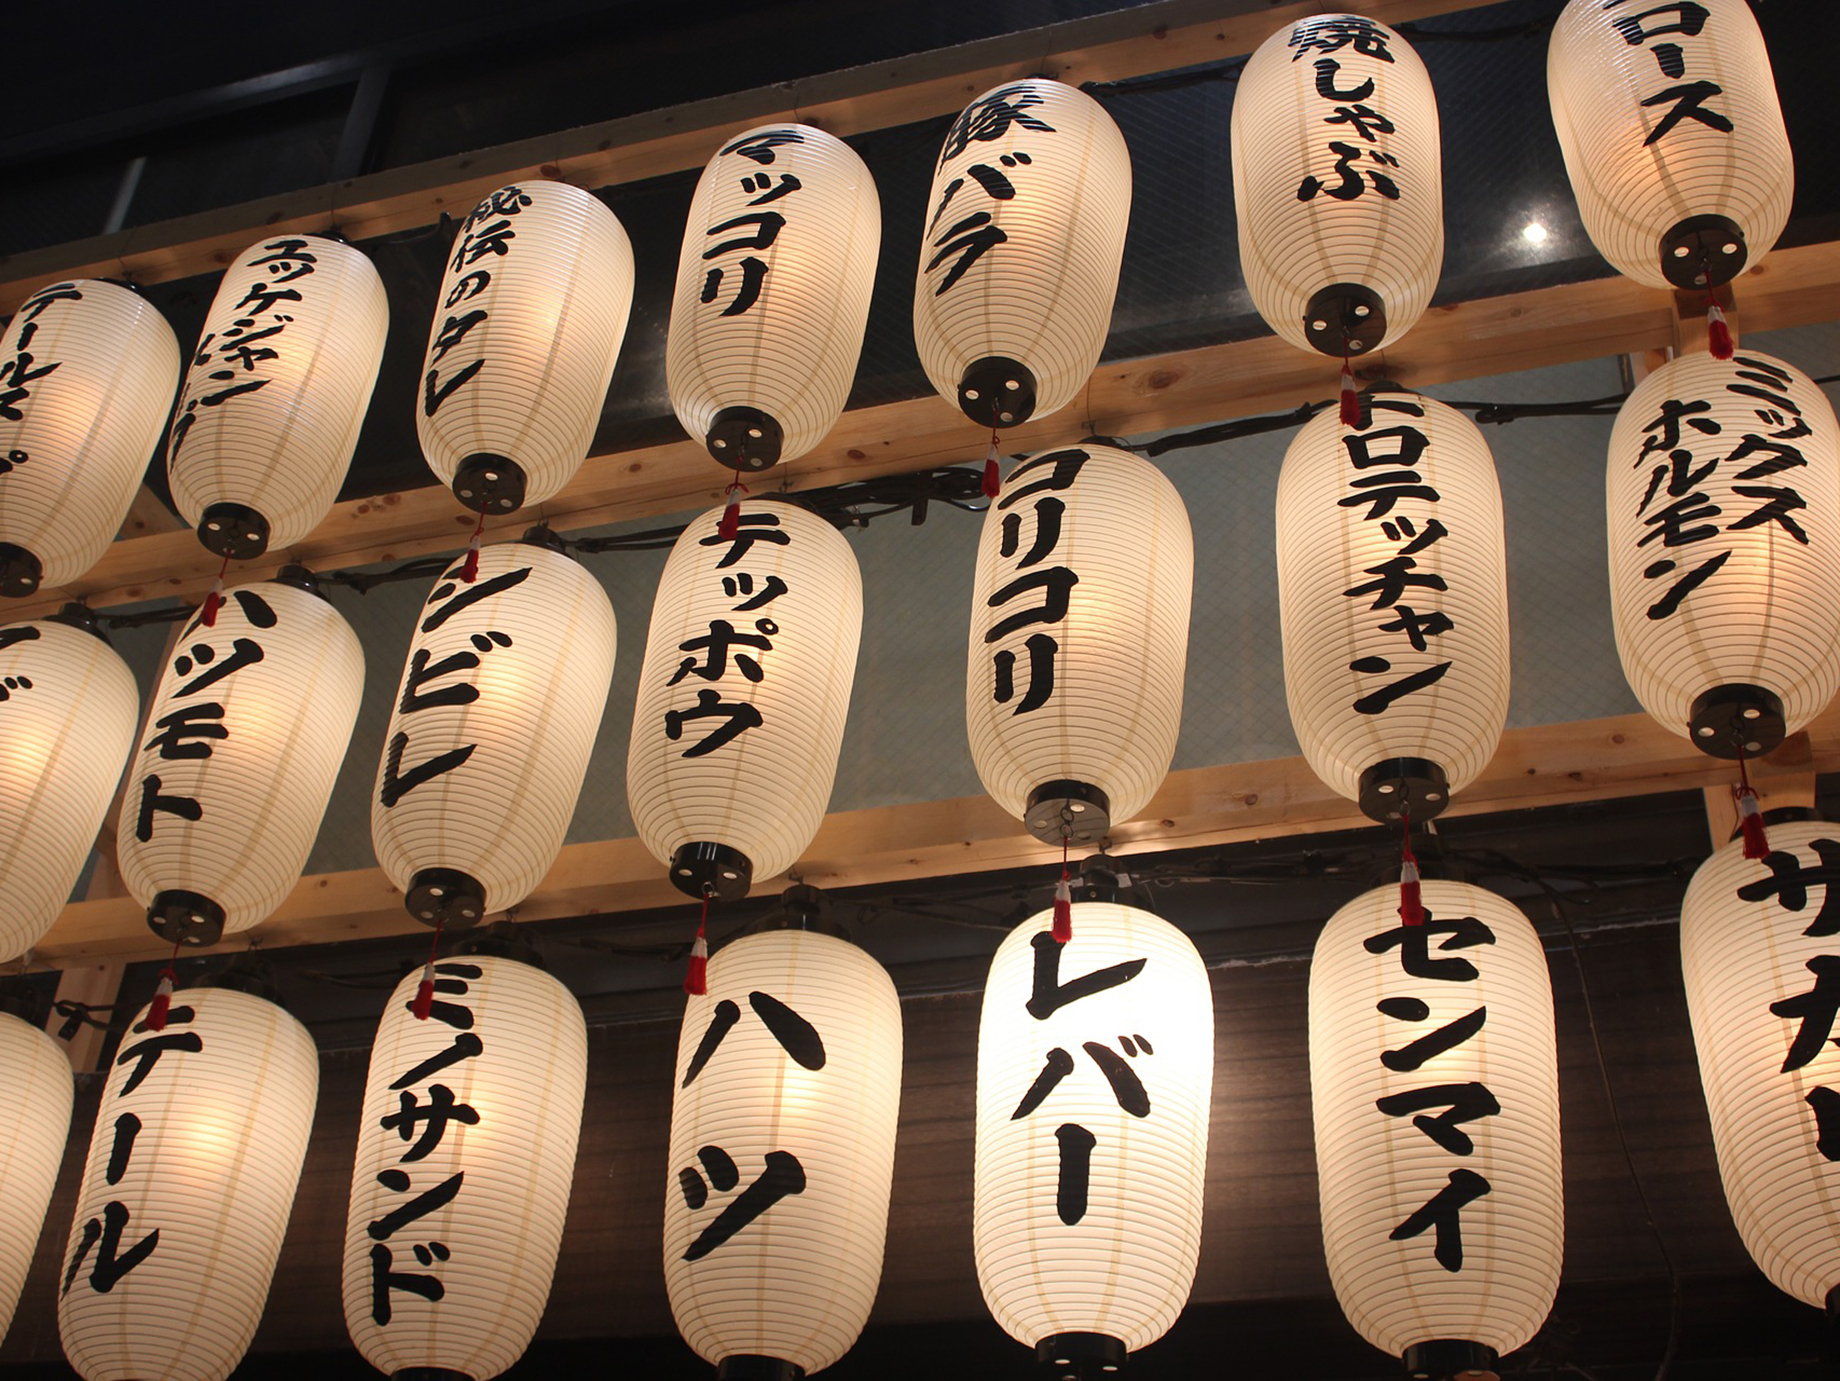 テールスープ
ユッケジャンクッパ
秘伝のタレ
マッコリ
豚バラ
焼しゃぶ
ロース
ハツモト
シビレ
テッポウ
コリコリ
トロテッチャン
ミックス
ホルモン
テール
ミノサンド
ハツ
レバー
センマイ